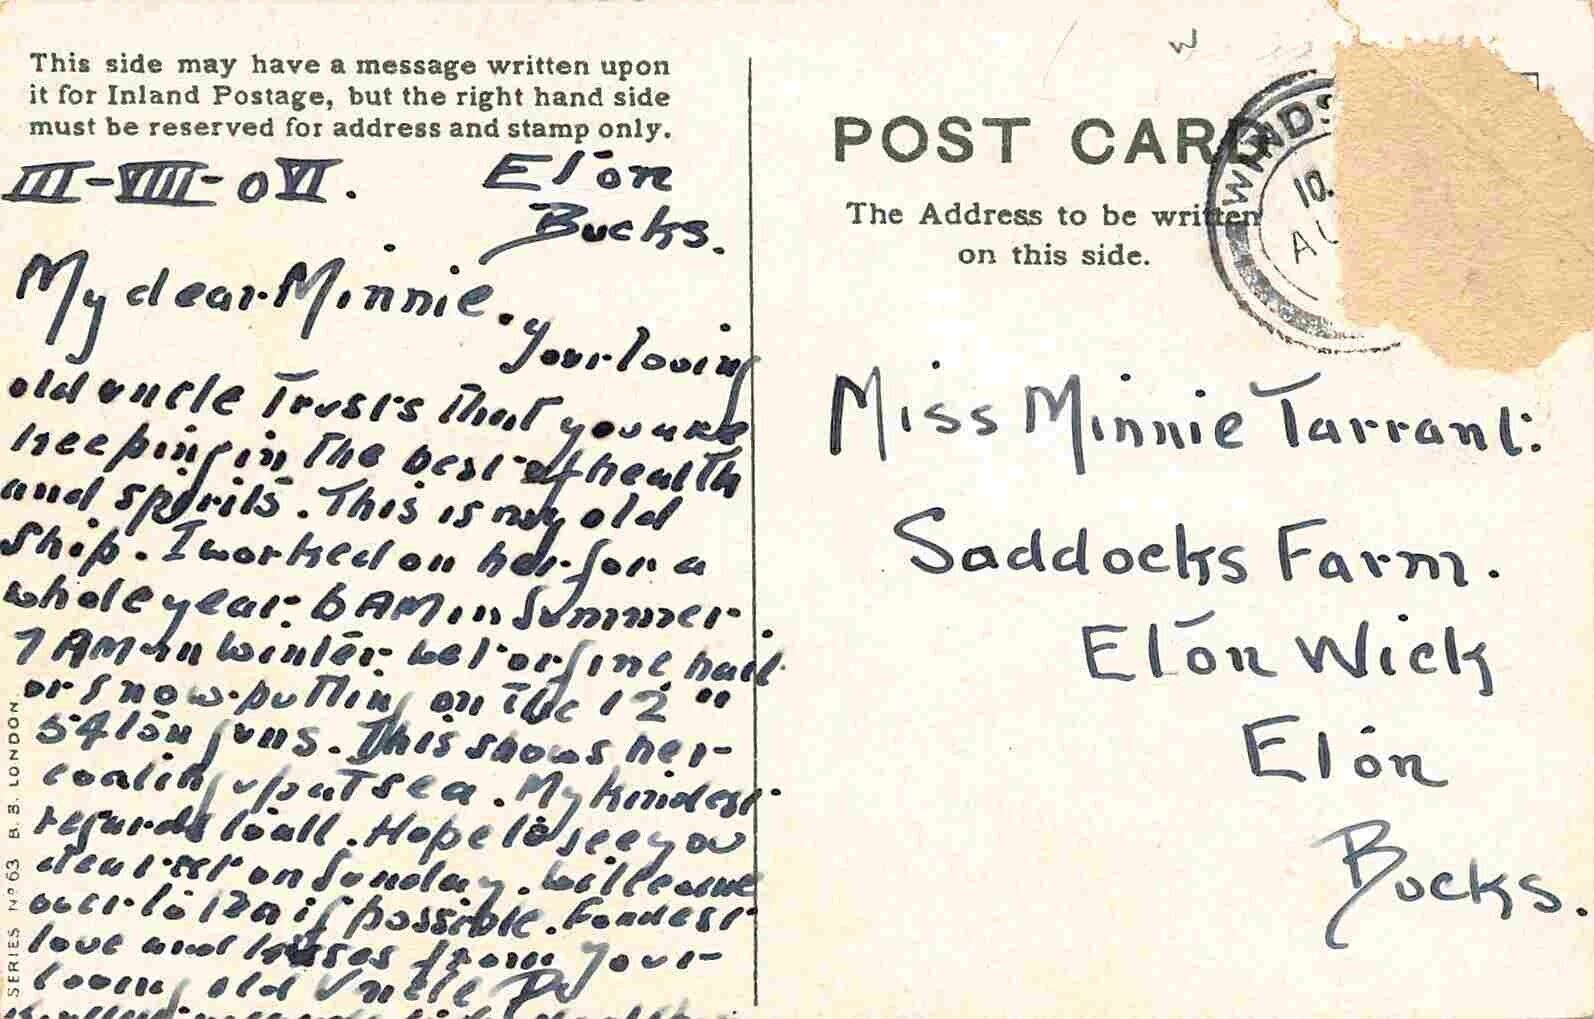 This side may have a message written upon
it for Inland Postage, but the right hand side
must be reserved for address and stamp only.
III-VIII-0VI. Eton
Bucks.
My dear Minnie. your loving
old uncle Trusts that you are
keeping in the best of health
and spirits. This is my old
ship. I worked on her for a
whole year. 6 AM in summer
7 AM in winter. wet or fine hail
or snow putting on the 12"
54 ton guns. This shows her
coaling up at sea. My kindest
regards to all. Hope to see you
dearest on Sunday. Will come
over to if possible. Fondest
love and kisses from your
loving old Uncle
SERIES No 63 B. B. LONDON.
POST CARD
The Address to be written
on this side.
WINDS
10.
AU
Miss Minnie Tarrant:
Saddocks Farm.
Eton Wick
Eton
Bucks.
W